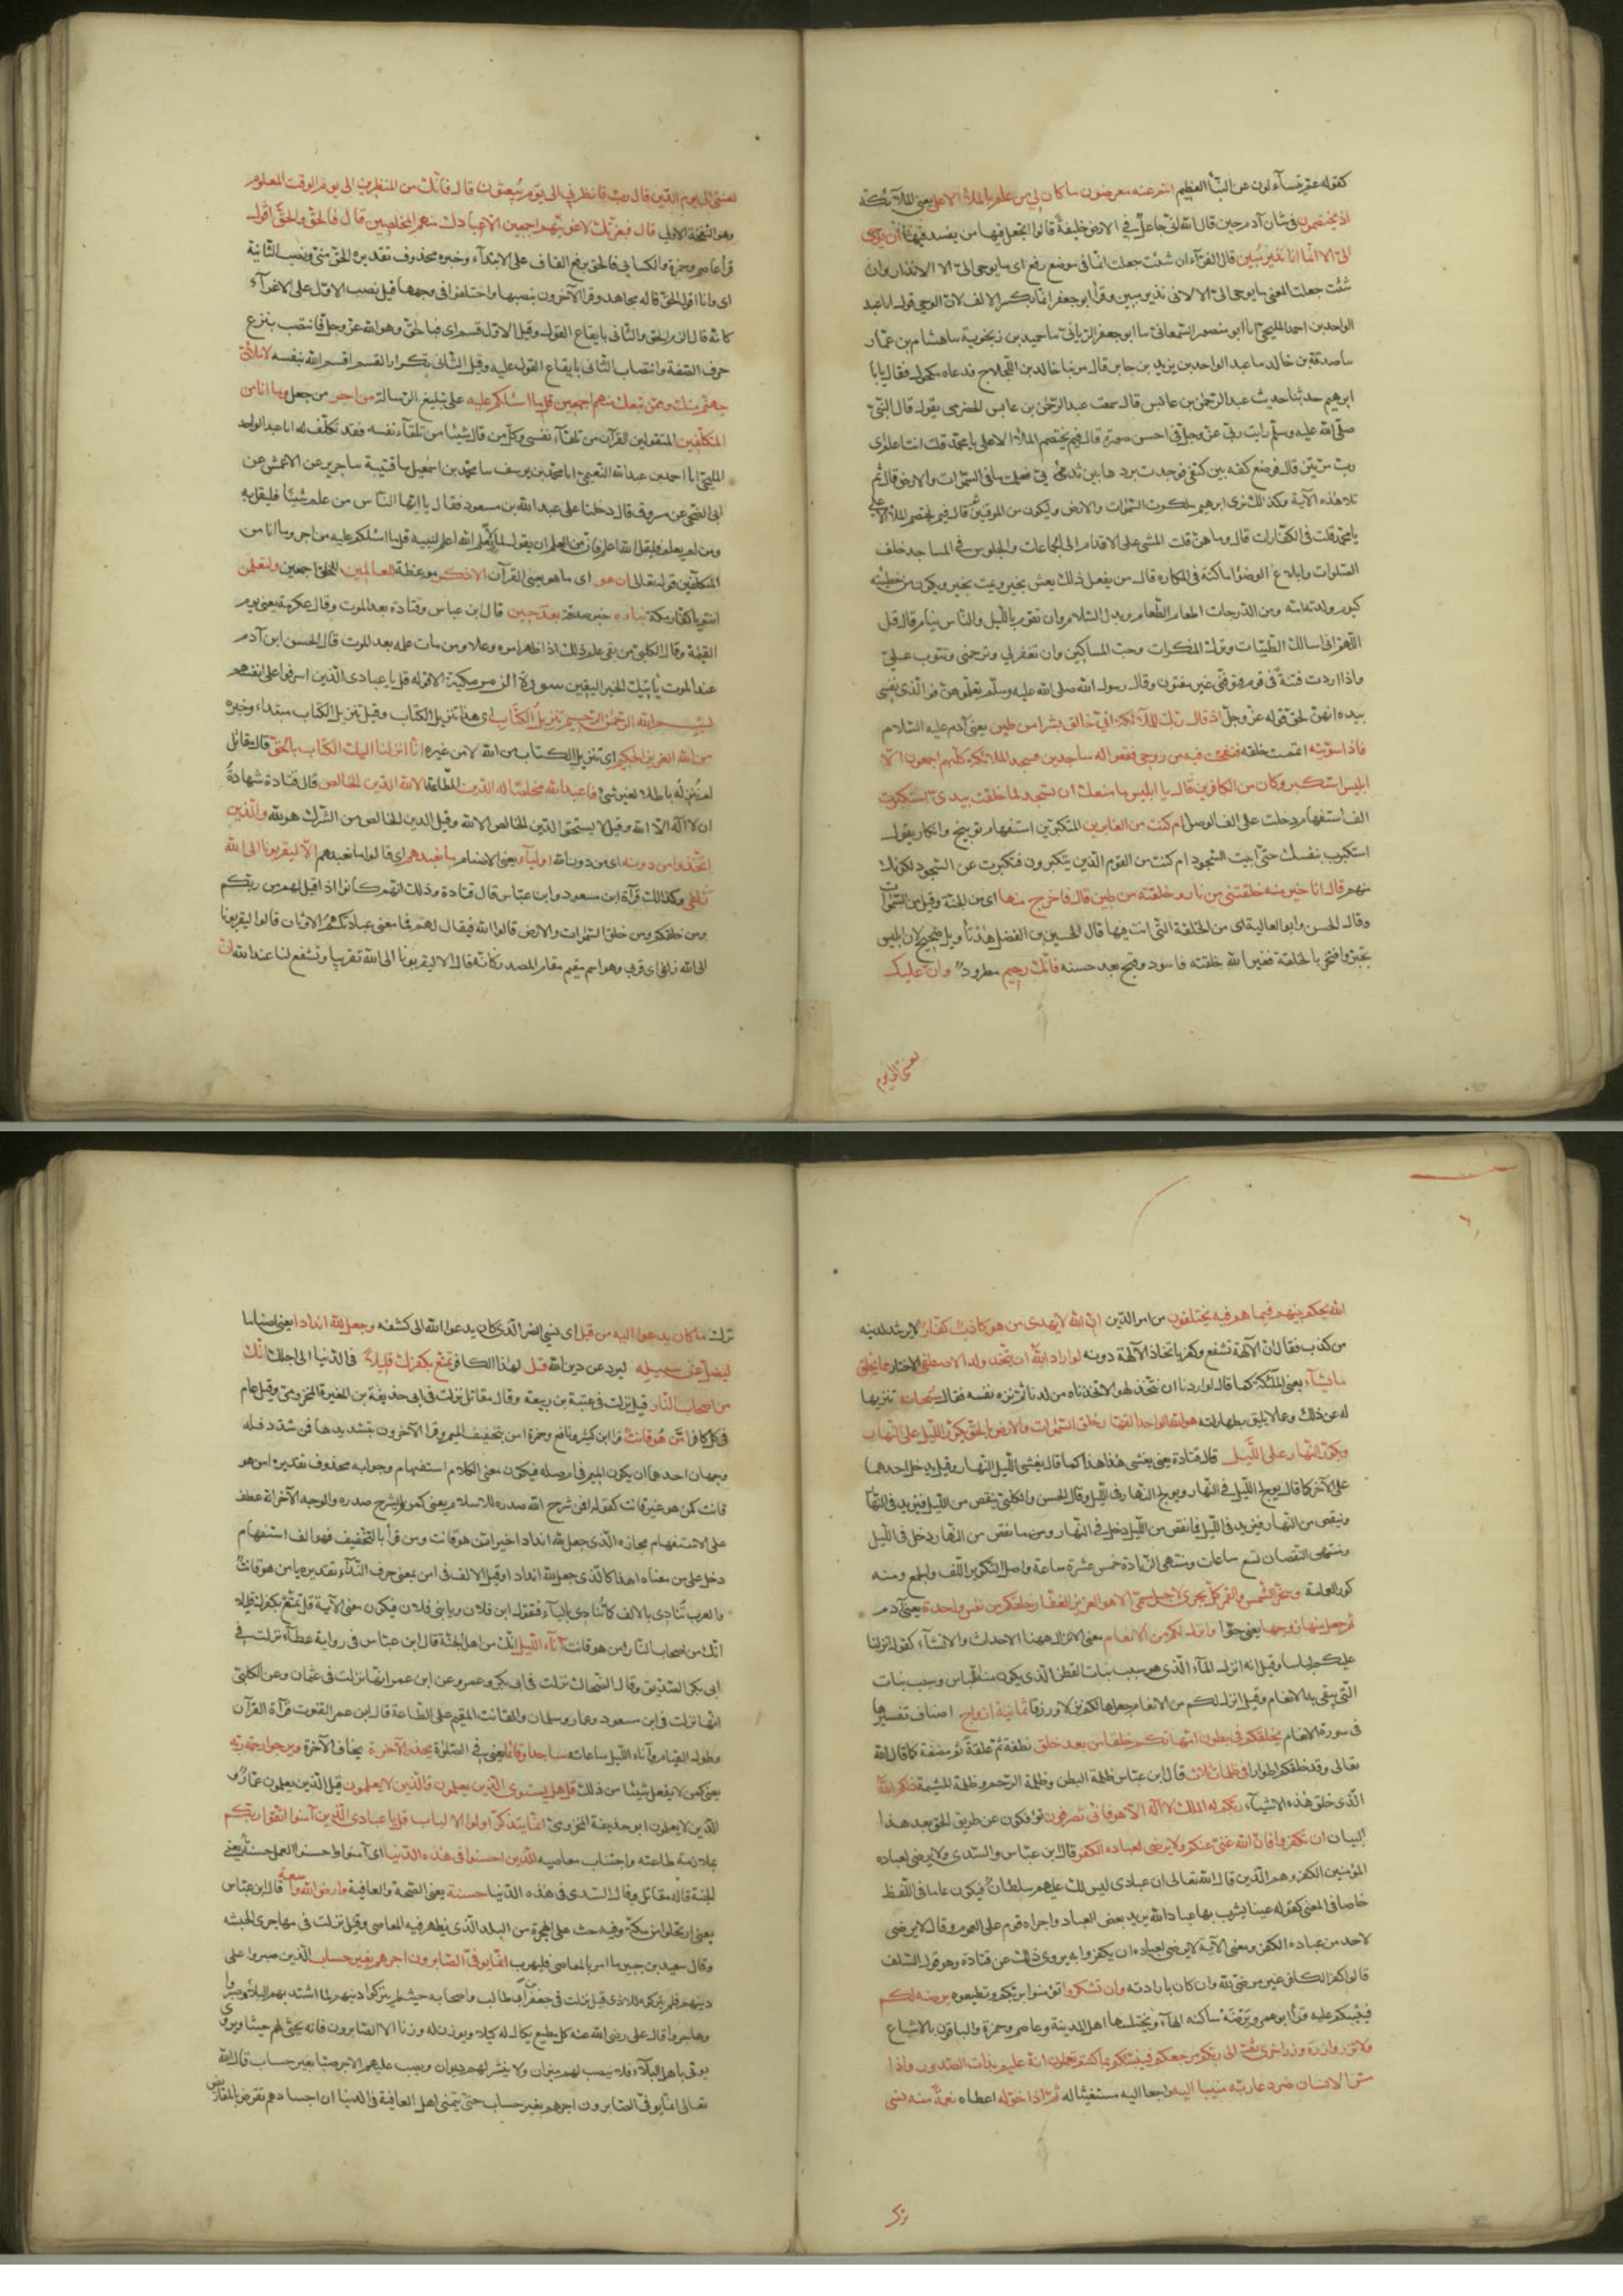 كقوله عم يتسآءلون عن النبأ العظيم انتم عنه معرضون ما كان لي من علم بالملأ الاعلى يعني الملآئكة
اذ يختصمون في شان آدم حين قال الله اني جاعل في الارض خليفة قالوا اتجعل فيها من يفسد فيها ان يوحى
الي الا انما انا نذير مبين قال الفرآء ان شئت جعلت انما في موضع رفع اى ما يوحى الي الا الانذار وان
شئت جعلت المعنى ما يوحى الي الا لانى نذير مبين وقرأ ابو جعفر انما بكسر الالف لان الوحي قول انا عبد
الواحد بن احمد المليحي انا ابو منصور السمعاني سا ابو جعفر الرياني سا حميد بن زنجويه سا هشام بن عمار
سا صدقة بن خالد سا عبد الواحد بن يزيد بن جابر قال مر بنا خالد بن اللجلاج فدعاه مكحول فقال يا با
ابرهيم حدثنا حديث عبد الرحمن بن عائش قال سمعت عبد الرحمن بن عائش الحضرمي يقول قال النبي
صلى الله عليه وسلم رايت ربي عز وجل في احسن صورة قال فيم يختصم الملأ الاعلى يا محمد قلت انت اعلم اى
رب مرتين قال فوضع كفه بين كتفي فوجدت بردها بين ثديي فعلمت ما في السموات والارض قال ثم
تلا هذه الآية وكذلك نرى ابرهيم ملكوت السموات والارض وليكون من الموقنين ثم قال فيم يختصم الملأ الاعلى
يا محمد قلت في الكفارات قال وما هن قلت المشي على الاقدام الى الجماعات والجلوس في المساجد خلف
الصلوات وابلاغ الوضؤ اماكنه في المكاره قال من يفعل ذلك يعش بخير ويمت بخير ويكون من خطيئته
كيوم ولدته امه ومن الدرجات اطعام الطعام وبذل السلام وان تقوم بالليل والناس نيام قال قل
اللهم اني اسالك الطيبات وترك المنكرات وحب المساكين وان تغفر لي وترحمني وتتوب علي
واذا اردت فتنة في قوم فتوفني غير مفتون وقال رسول الله صلى الله عليه وسلم تعلموهن فوالذي نفسي
بيده انهن لحق قوله عز وجل اذ قال ربك للملآئكة اني خالق بشرا من طين يعني آدم عليه السلام
فاذا سويته اتممت خلقه فنفخت فيه من روحي فقعوا له ساجدين فسجد الملائكة كلهم اجمعون الا
ابليس استكبر وكان من الكافرين قال يا ابليس ما منعك ان تسجد لما خلقت بيدى استكبرت
الف استفهام دخلت على الف الوصل ام كنت من العالين المتكبرين استفهام توبيخ وانكار يقول
استكبرت بنفسك حتى ابيت السجود ام كنت من القوم الذين يتكبرون فتكبرت عن السجود لكونك
منهم قال انا خير منه خلقتني من نار وخلقته من طين قال فاخرج منها اى من الجنة وقيل من السموات
وقال الحسن وابو العالية اى من الخلقة التي انت فيها قال الحسين بن الفضل هذا تأويل صحيح لان ابليس
تجبر وافتخر بالخلقة فغير الله خلقته فاسود وقبح بعد حسنه فانك رجيم مطرود وان عليك
لعنتي الى يوم
لعنتي الى يوم الدين قال رب فانظرني الى يوم يبعثون قال فانك من المنظرين الى يوم الوقت المعلوم
وهو النفخة الاولى قال فبعزتك لاغوينهم اجمعين الا عبادك منهم المخلصين قال فالحق والحق اقول
قرأ عاصم وحمزة والكسايي فالحق برفع القاف على الابتدآء وخبره محذوف تقديره الحق مني ونصب الثانية
اى وانا اقول الحق قاله مجاهد وقرأ الآخرون بنصبهما واختلفوا في وجههما قيل نصب الاول على الاغرآء
كانه قال الزم الحق والثاني بايقاع القول وقيل الاول قسم اى فبالحق وهو الله عز وجل فانتصب بنزع
حرف الصفة وانتصاب الثاني بايقاع القول عليه وقيل الثاني تكرار القسم اقسم الله بنفسه لاملائن
جهنم منك وممن تبعك منهم اجمعين قل ما اسئلكم عليه على تبليغ الرسالة من اجر من جعل وما انا من
المتكلفين المتقولين القرآن من تلقآء نفسي وكل من قال شيئا من تلقآء نفسه فقد تكلف له انا عبد الواحد
المليحي انا احمد بن عبد الله النعيمي انا محمد بن يوسف سا محمد بن اسمعيل سا قتيبة سا جرير عن الاعمش عن
ابي الضحى عن مسروق قال دخلنا على عبد الله بن مسعود فقال يا ايها الناس من علم شيئا فليقل به
ومن لم يعلم فليقل الله اعلم فان من العلم ان يقول لما لا يعلم الله اعلم لنبيه قل ما اسئلكم عليه من اجر وما انا من
المتكلفين قوله تعالى ان هو اى ما هو يعني القرآن الا ذكر موعظة للعالمين للخلق اجمعين ولتعلمن
انتم يا كفار مكة نباءه خبر صدقه بعد حين قال ابن عباس وقتادة بعد الموت وقال عكرمة يعني يوم
القيمة وقال الكلبي من بقي علم ذلك اذا ظهر امره وعلا ومن مات علمه بعد الموت قال الحسن ابن آدم
عند الموت يأتيك الخبر اليقين سورة الزمر مكية الا قوله قل يا عبادى الذين اسرفوا على انفسهم
بسم الله الرحمن الرحيم تنزيل الكتاب اى هذا تنزيل الكتاب وقيل تنزيل الكتاب مبتداء وخبره
من الله العزيز الحكيم اى تنزيل الكتاب من الله لا من غيره انا انزلنا اليك الكتاب بالحق قال مقاتل
لم ننزله باطلا لغير شئ فاعبد الله مخلصا له الدين الطاعة الا لله الدين الخالص قال قتادة شهادة
ان لا اله الا الله وقيل لا يستحق الدين الخالص الا الله وقيل الدين الخالص من الشرك هو لله والذين
اتخذوا من دونه اى من دون الله اوليآء يعني الاصنام ما نعبدهم اى قالوا ما نعبدهم الا ليقربونا الى الله
زلفى وكذلك قرآة ابن مسعود وابن عباس قال قتادة وذلك انهم كانوا اذا قيل لهم من ربكم
ومن خلقكم ومن خلق السموات والارض قالوا الله فيقال لهم فما معنى عبادتكم الاوثان قالوا ليقربونا
الى الله زلفى اى قربى وهو اسم مقيم مقام المصدر كانه قال الا ليقربونا الى الله تقريبا وتشفع لنا عند الله ان
الله يحكم بينهم فيما هم فيه يختلفون من امر الدين ان الله لا يهدى من هو كاذب كفار لا يرشد لدينه
من كذب فقال ان الآلهة تشفع وكفر باتخاذ الآلهة دونه لو اراد الله ان يتخذ ولدا لاصطفى لاختار مما يخلق
ما يشآء يعني الملئكة كما قال لو اردنا ان نتخذ لهوا لاتخذناه من لدنا ثم نزه نفسه فقال سبحانه تنزيها
له عن ذلك وعما لا يليق بطهارته هو الله الواحد القهار خلق السموات والارض بالحق يكور الليل على النهار
ويكور النهار على الليل قال قتادة يعني يغشى هذا هذا كما قال يغشى الليل النهار وقيل يدخل احدهما
على الآخر كما قال يولج الليل في النهار ويولج النهار في الليل وقال الحسن والكلبي ينقص من الليل فيزيد في النهار
وينقص من النهار فيزيد في الليل فما نقص من الليل دخل في النهار وما نقص من النهار دخل في الليل
ومنتهى النقصان تسع ساعات ومنتهى الزيادة خمس عشرة ساعة واصل التكوير اللف والجمع ومنه
كور العمامة وسخر الشمس والقمر كل يجرى لاجل مسمى الا هو العزيز الغفار خلقكم من نفس واحدة يعني آدم
ثم جعل منها زوجها يعني حوا وانزل لكم من الانعام معنى الانزال ههنا الاحداث والانشآء كقوله انزلنا
عليكم لباسا وقيل انه انزل المآء الذى هو سبب نبات القطن الذى يكون منه اللباس وسبب نبات
التى يبقى بها الانعام وقيل انزل لكم من الانعام جعلها لكم نزلا ورزقا ثمانية ازواج اصناف تفسيرها
في سورة الانعام يخلقكم في بطون امهاتكم خلقا من بعد خلق نطفة ثم علقة ثم مضغة كما قال الله
تعالى وقد خلقكم اطوارا في ظلمات ثلاث قال ابن عباس ظلمة البطن وظلمة الرحم وظلمة المشيمة ذلكم الله
الذى خلق هذه الاشيآء ربكم له الملك لا اله الا هو فانى تصرفون تؤفكون عن طريق الحق بعد هذا
البيان ان تكفروا فان الله غني عنكم ولا يرضى لعباده الكفر قال ابن عباس والسدى ولا يرضى لعباده
المؤمنين الكفر وهم الذين قال الله تعالى ان عبادى ليس لك عليهم سلطان فيكون عاما في اللفظ
خاصا في المعنى كقوله عينا يشرب بها عباد الله يريد بعض العباد واجراه قوم على العموم وقال لا يرضى
لاحد من عباده الكفر ومعنى الآية لا يرضى لعباده ان يكفروا به يروى ذلك عن قتادة وهو قول السلف
قالوا كفر الكافر غير مرضي لله وان كان بارادته وان تشكروا تؤمنوا بربكم وتطيعوه يرضه لكم
فيثيبكم عليه قرأ ابو عمرو يرضه ساكنه الهآء ويختلسها اهل المدينة وعاصم وحمزة والباقون بالاشباع
ولا تزر وازرة وزر اخرى ثم الى ربكم مرجعكم فينبئكم بما كنتم تعملون انه عليم بذات الصدور واذا
مس الانسان ضر دعا ربه منيبا اليه راجعا اليه مستغيثا له ثم اذا خوله اعطاه نعمة منه نسي
ترك
ترك ما كان يدعوا اليه من قبل اى نسي الضر الذى كان يدعوا الله الى كشفه وجعل لله اندادا يعني اصناما
ليضل عن سبيله ليرد عن دين الله قل لهذا الكافر تمتع بكفرك قليلا في الدنيا الى اجلك انك
من اصحاب النار قيل نزلت في عتبة بن ربيعة وقال مقاتل نزلت في ابي حذيفة بن المغيرة المخزومي وقيل عام
في كل كافر امن هو قانت قرأ ابن كثير ونافع وحمزة امن بتخفيف الميم وقرأ الآخرون بتشديدها فمن شدد فله
وجهان احدهما ان يكون الميم في ام صلة فيكون معنى الكلام استفهام وجوابه محذوف تقديره امن هو
قانت كمن هو غير قانت كقوله افمن شرح الله صدره للاسلام يعني كمن لم يشرح صدره والوجه الآخر انه عطف
على الاستفهام مجازه الذى جعل لله اندادا خير امن هو قانت ومن قرأ بالتخفيف فهو الف استفهام
دخل على من معناه اهذا كالذى جعل لله اندادا وقيل الالف في امن بمعنى حرف الندآء تقديره يا من هو قانت
والعرب تنادى بالالف كما تنادى باليآء فتقول ابن فلان ويا بني فلان فيكون معنى الآية قل تمتع بكفرك قليلا
انك من اصحاب النار امن هو قانت آنآء الليل انك من اهل الجنة قال ابن عباس في رواية عطآء نزلت في
ابي بكر الصديق وقال الضحاك نزلت في ابي بكر وعمر وعن ابن عمر انها نزلت في عثمان وعن الكلبي
انها نزلت في ابن مسعود وعمار وسلمان والقانت المقيم على الطاعة قال ابن عمر القنوت قرآة القرآن
وطول القيام وآناء الليل ساعاته ساجدا وقائما يعني في الصلوة يحذر الآخرة يخاف الآخرة ويرجوا رحمة ربه
يعني كمن لا يفعل شيئا من ذلك قل هل يستوى الذين يعلمون والذين لا يعلمون قيل الذين يعلمون عمار و
الذين لا يعلمون ابو حذيفة المخزومي انما يتذكر اولوا الالباب قل يا عبادى الذين آمنوا اتقوا ربكم
بملازمة طاعته واجتناب معاصيه للذين احسنوا في هذه الدنيا اى آمنوا واحسنوا العمل حسنة يعني
الجنة قاله مقاتل وقال السدى في هذه الدنيا حسنة يعني الصحة والعافية وارض الله واسعة قال ابن عباس
يعني ارتحلوا من مكة وفيه حث على الهجرة من البلد الذى يظهر فيه المعاصي وقيل نزلت في مهاجرى الحبشه
وقال سعيد بن جبير من امر بالمعاصي فليهرب انما يوفى الصابرون اجرهم بغير حساب الذين صبروا على
دينهم فلم يتركوه للاذى قيل نزلت في جعفر بن ابي طالب واصحابه حيث لم يتركوا دينهم لما اشتد بهم البلاء وصبروا
وهاجروا قال على رضى الله عنه كل مطيع يكال له كيلا ويوزن له وزنا الا الصابرون فانه يحثى لهم حثيا ويروى
يوتى باهل البلآء فلا ينصب لهم ميزان ولا ينشر لهم ديوان ويصب عليهم الاجر صبا بغير حساب قال الله
تعالى انما يوفى الصابرون اجرهم بغير حساب حتى يتمنى اهل العافية في الدنيا ان اجسادهم تقرض بالمقاريض